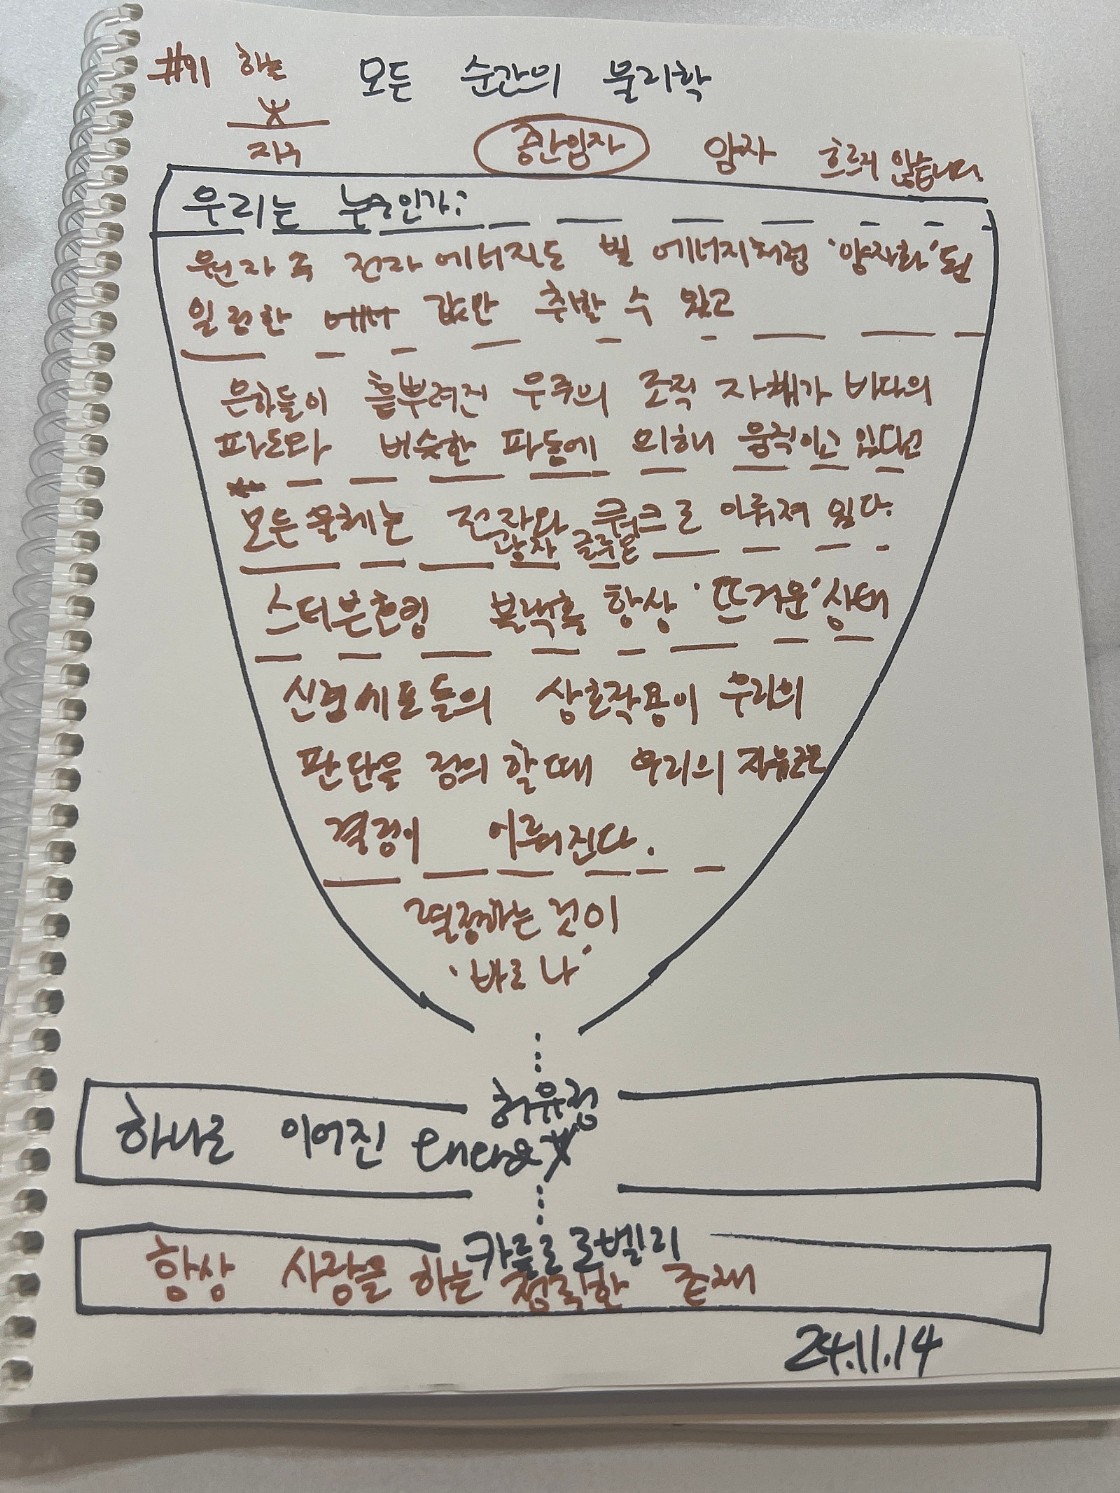 #91 하늘 모든 순간의 물리학
지구 중간입자 양자 흐르지 않습니다.
우리는 누구인가?
원자 속 전자 에너지도 빛 에너지처럼 '양자화'된
일정한 값만 취할 수 있고
은하들이 흩뿌려진 우주의 조직 자체가 바다의
파도와 비슷한 파동에 의해 움직이고 있다고
모든 물체는 전자와 쿼크로 이뤄져 있다.
광자 글루온
스티븐호킹 블랙홀 항상 '뜨거운' 상태
신경세포들의 상호작용이 우리의
판단을 정의 할때 우리의 자유로운
결정이 이뤄진다.
결정하는 것이
'바로 나'
허유정
하나로 이어진 energy
카를로 로벨리
항상 사랑을 하는 정직한 존재
24.11.14